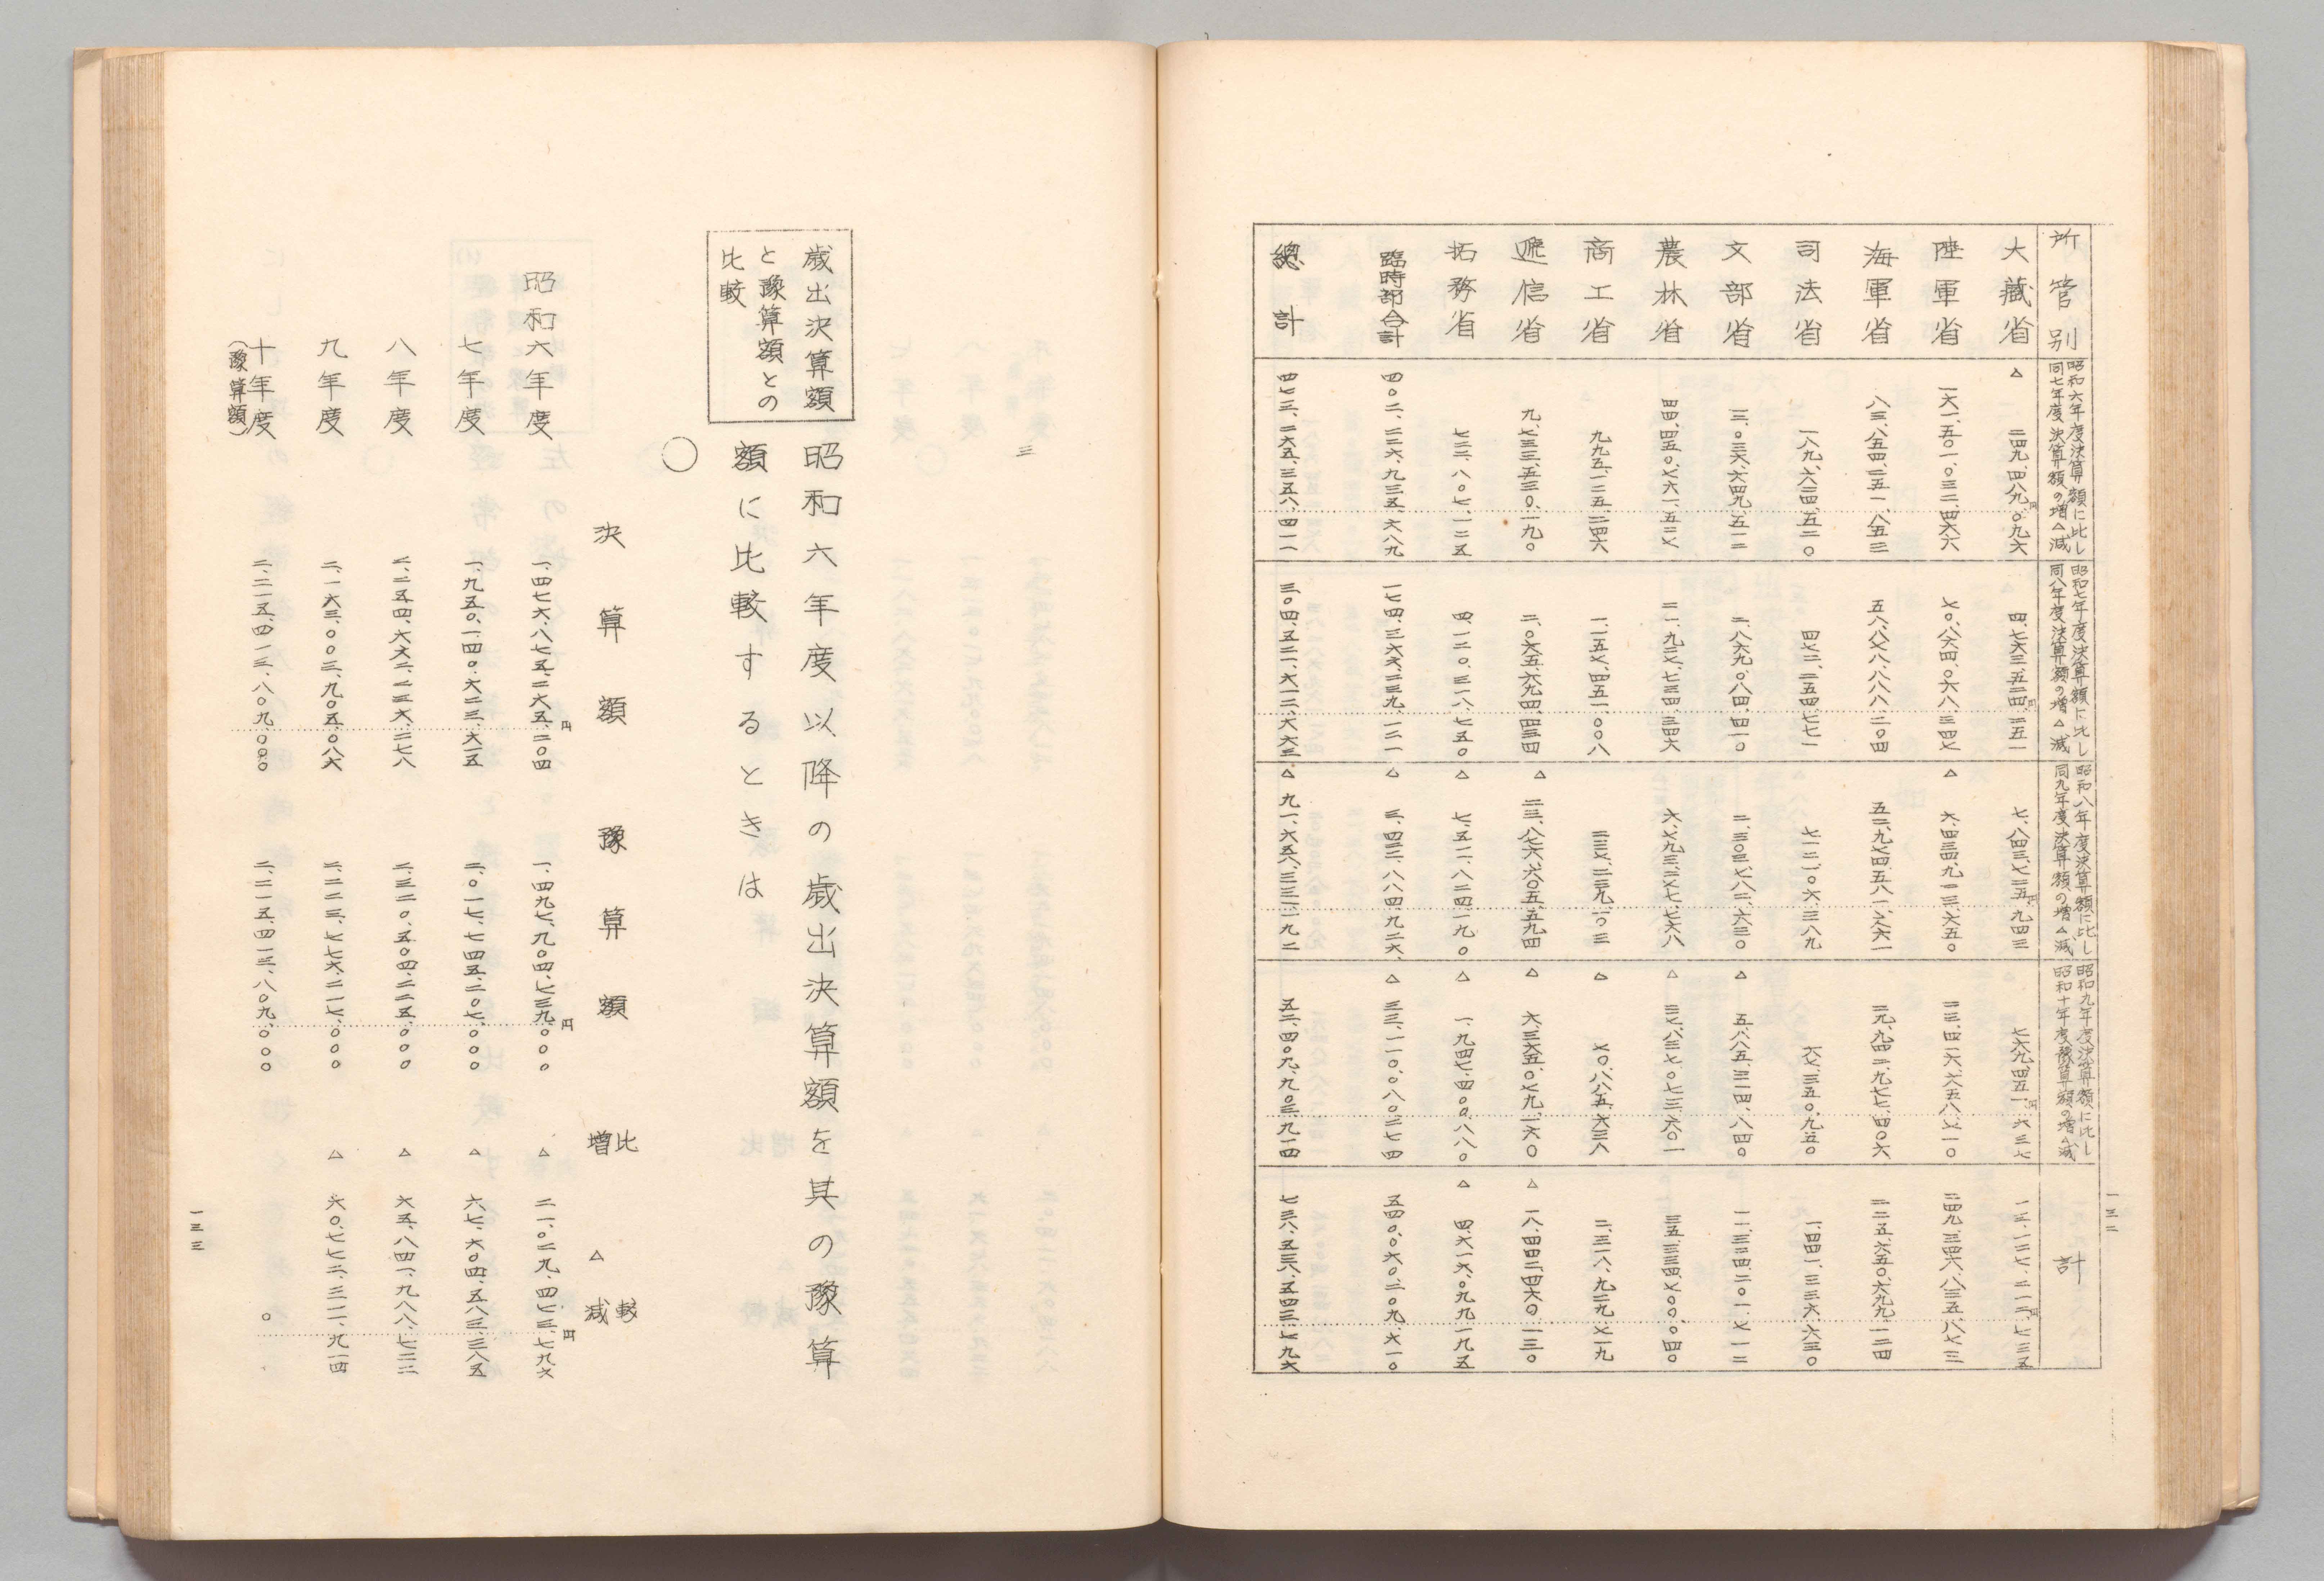 所管別 昭和六年度決算額に比し同七年度決算額の増△減 昭和七年度決算額に比し同八年度決算額の増△減 昭和八年度決算額に比し同九年度決算額の増△減 昭和九年度決算額に比し昭和十年度豫算額の増△減 計
大藏省 △ 二四九、四八九円、〇九六 四、七六三、五二四円、二五一 七、八四三、七二五円、九四三 七六九、四五一円、六三七 一三、一二七、二一二円、七三五
陸軍省 一六一、五〇一、〇三二、四六六 七〇、八六四、〇六八、三四七 △ 六、四三四、九二三、六五〇 二三、四一六、六五八、七一〇 二四九、三四六、八三五、八七三
海軍省 八三、八五四、二五一、八五三 五六、八七八、八八八、二〇四 五二、九七四、五八一、六六一 二九、九四二、九七七、四〇六 二二三、六五〇、六九九、一二四
司法省 一八九、六二四、五二〇 四七二、二五四、七七一 七一二、一〇六、三八九 六七、三五〇、九五〇 一、四四一、三三六、六三〇
文部省 三、〇三六、六四九、五一二 二、八六九、〇八四、四一〇 二、三〇三、七八二、六三〇 △ 五、八八五、三一四、八四〇 二、三二四、二〇一、七一二
農林省 四四、四五〇、七六一、五二七 二一、九二七、七三四、三四六 六、七九三、二七七、七六八 △ 三七、八三七、〇七三、六〇一 三五、三三四、七〇〇、〇四〇
商工省 九九五、一二五、二四六 一、一五七、四五一、〇〇八 二三七、二三九、一〇三 △ 七〇、八八五、六三八 二、三一八、九二九、七一九
遞信省 九、七三三、五三〇、一九〇 二、〇六五、六九四、四三四 △ 二三、八七六、六〇五、五九四 △ 六、三六五、〇七九、一六〇 △ 一八、四四二、四六〇、一三〇
拓務省 七二二、八〇七、一二五 四、一二〇、三一八、七五〇 △ 七、五一一、八二四、一九〇 △ 一、九四七、四〇〇、八八〇 △ 四、六一六、〇九九、一九五
臨時部合計 四〇二、二二六、九三五、六八九 一七四、三六六、二三九、一二一 △ 三、四二二、八八四、九二六 △ 三三、一一〇、〇八〇、二七四 五四〇、〇六〇、二〇九、六一〇
總計 四七三、二六五、三五八、四一一 三〇四、五二一、六一二、六六三 △ 九一、六五八、三三一、一九二 五二、四〇九、九〇三、九一四 七三八、五三八、五四三、七九六
一三二
歳出決算額
と豫算額との
比較
昭和六年度以降の歳出決算額を其の豫算
額に比較するときは
○
決算額 豫算額 比較増△減
昭和六年度 一、四七六、八七五、二六五円、二〇四 一、四九七、九〇四、七三九円、〇〇〇 △ 二一、〇二九、四七三円、七九六
七年度 一、九五〇、一四〇、六二三、六一五 二、〇一七、七四五、二〇七、〇〇〇 △ 六七、六〇四、五八三、三八五
八年度 二、二五四、六六二、二三六、二七八 二、三二〇、五〇四、二二五、〇〇〇 △ 六五、八四一、九八八、七二二
九年度 二、一六三、〇〇三、九〇五、〇八六 二、二二三、七七六、二一七、〇〇〇 △ 六〇、七七二、三一一、九一四
十年度(豫算額) 二、二一五、四一三、八〇九、〇〇〇 二、二一五、四一三、八〇九、〇〇〇 〇
一三三